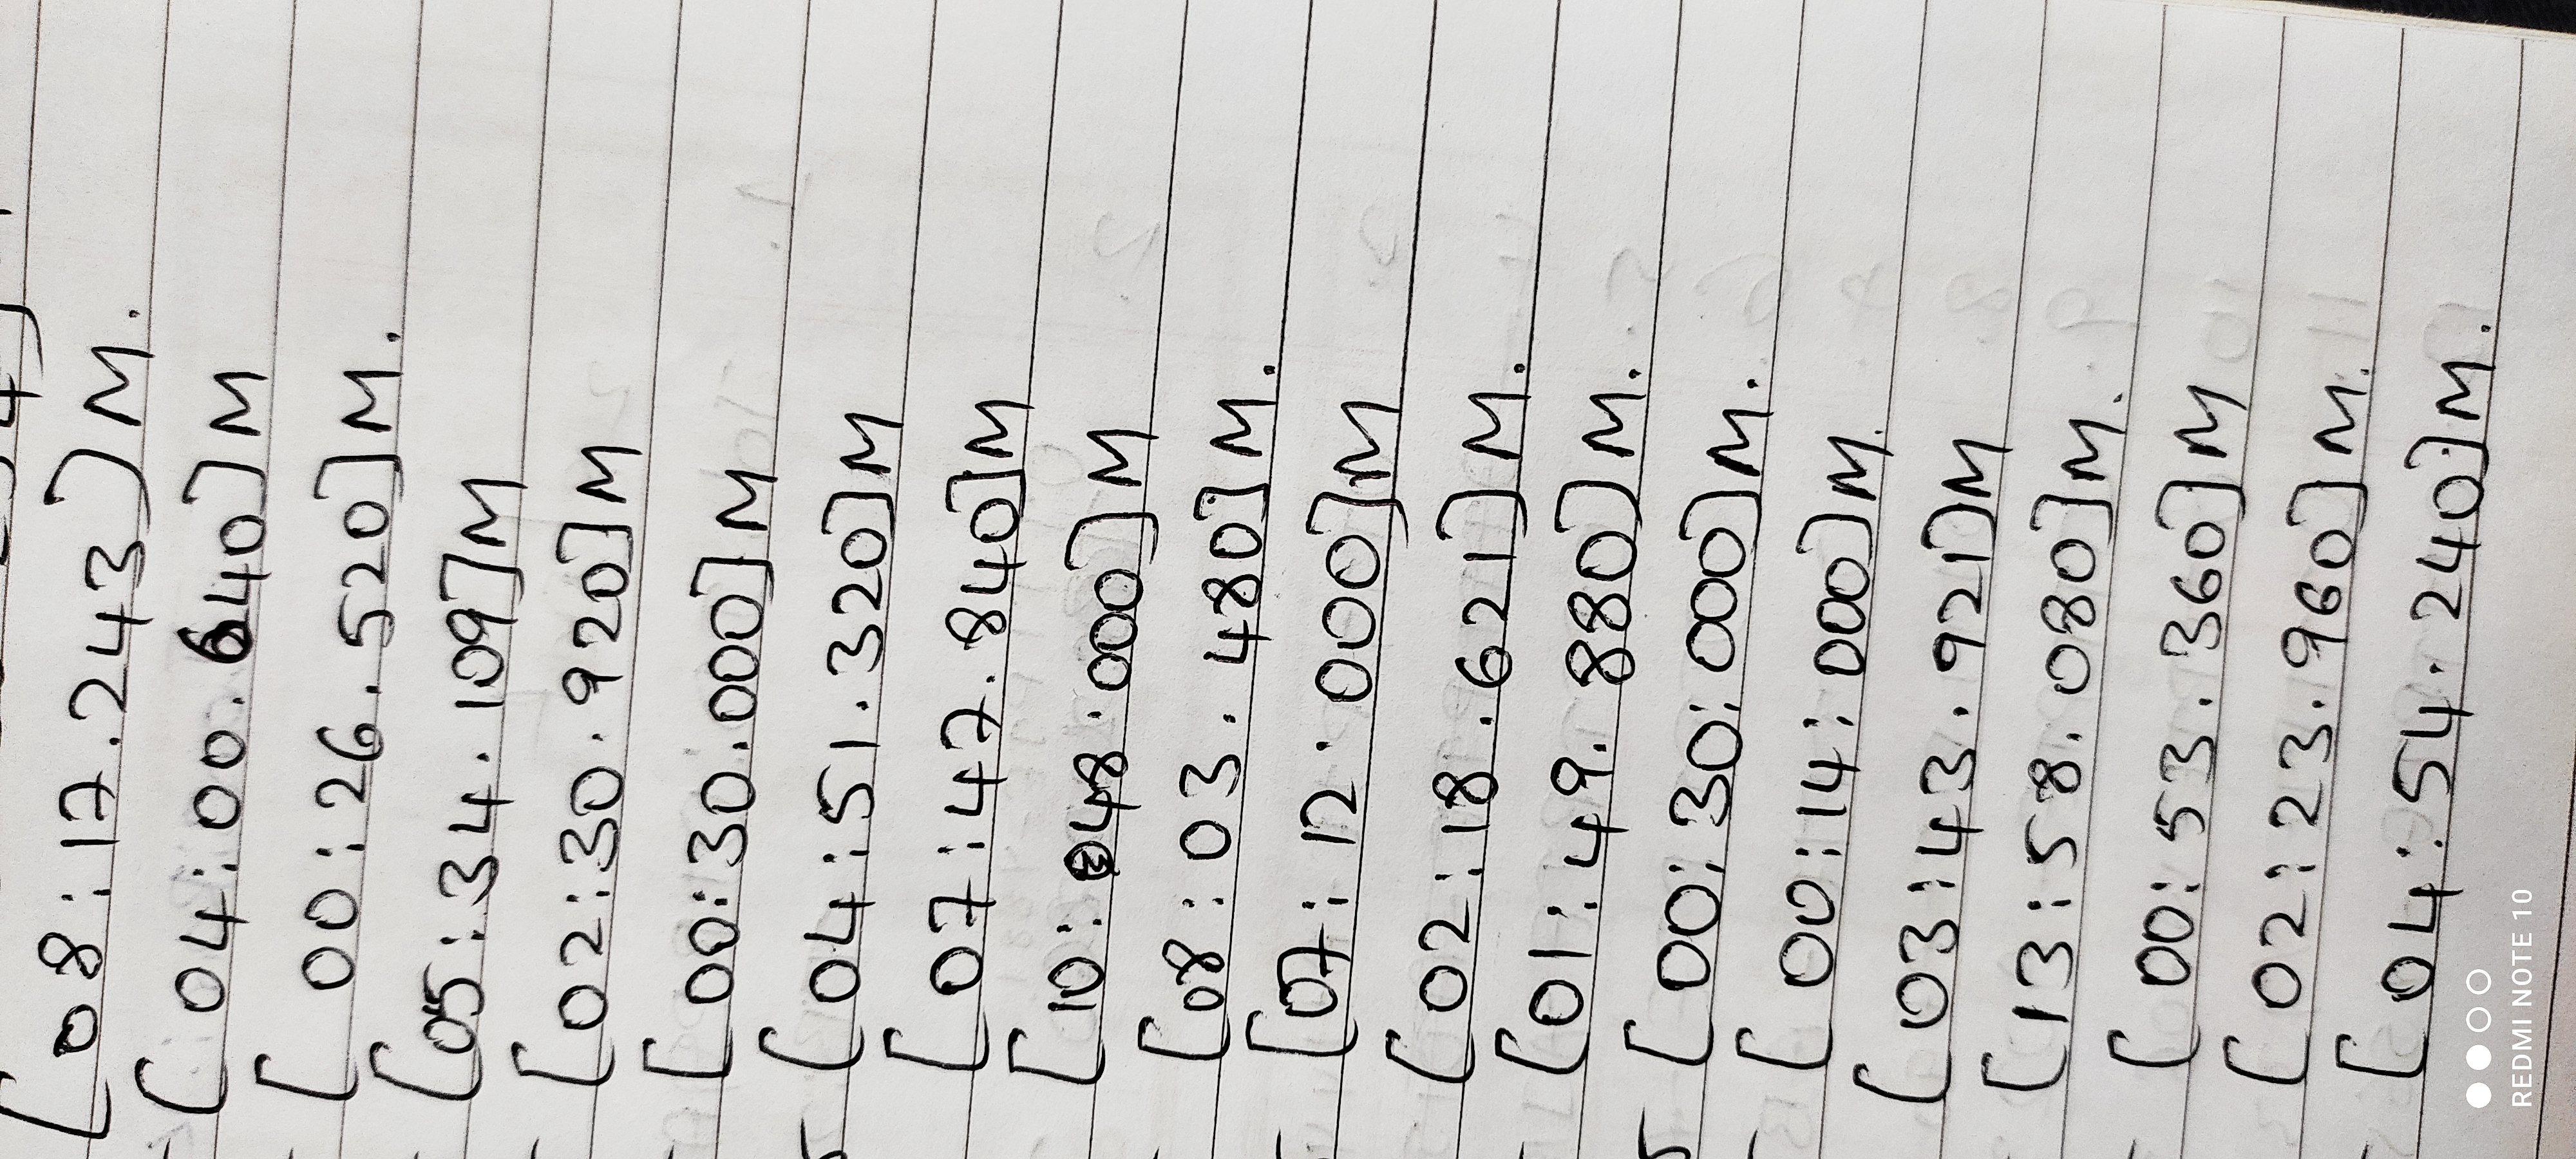 [08:17.243]M.
[04:00.640]M
[00:26.520]M.
[05:34.109]M
[02:30.920]M
[00:30.000]M
[04:51.320]M
[07:47.840]M
[10:048.000]M
[08:03.480]M.
[07:12.000]M
[02:18.621]M.
[01:49.880]M.
[00:30:000]M.
[00:14:000]M.
[03:43.921]M
[13:58.080]M.
[00:53.360]M
[02:23.960]M.
[04:54.240]M.
REDMI NOTE 10